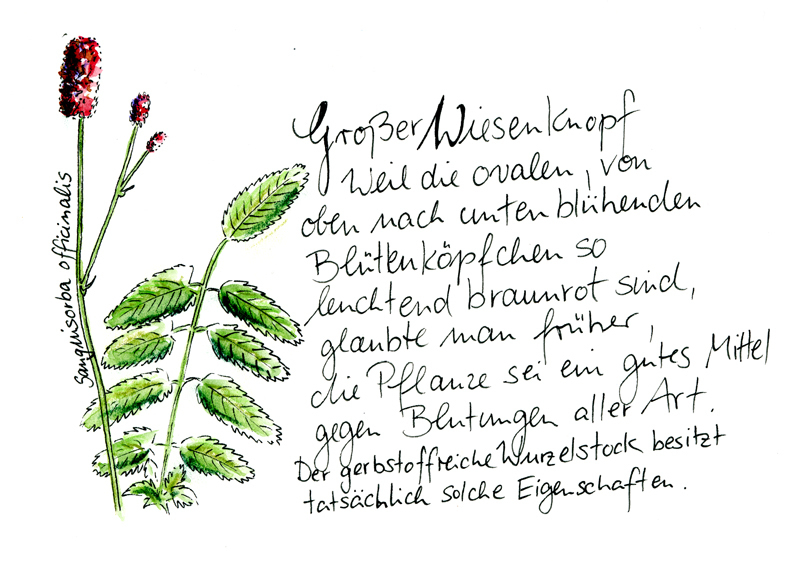 Großer Wiesenknopf
Weil die ovalen, von
oben nach unten blühenden
Blütenköpfchen so
leuchtend braunrot sind,
glaubte man früher,
die Pflanze sei ein gutes Mittel
gegen Blutungen aller Art.
Der gerbstoffreiche Wurzelstock besitzt
tatsächlich solche Eigenschaften.
Sanguisorba officinalis